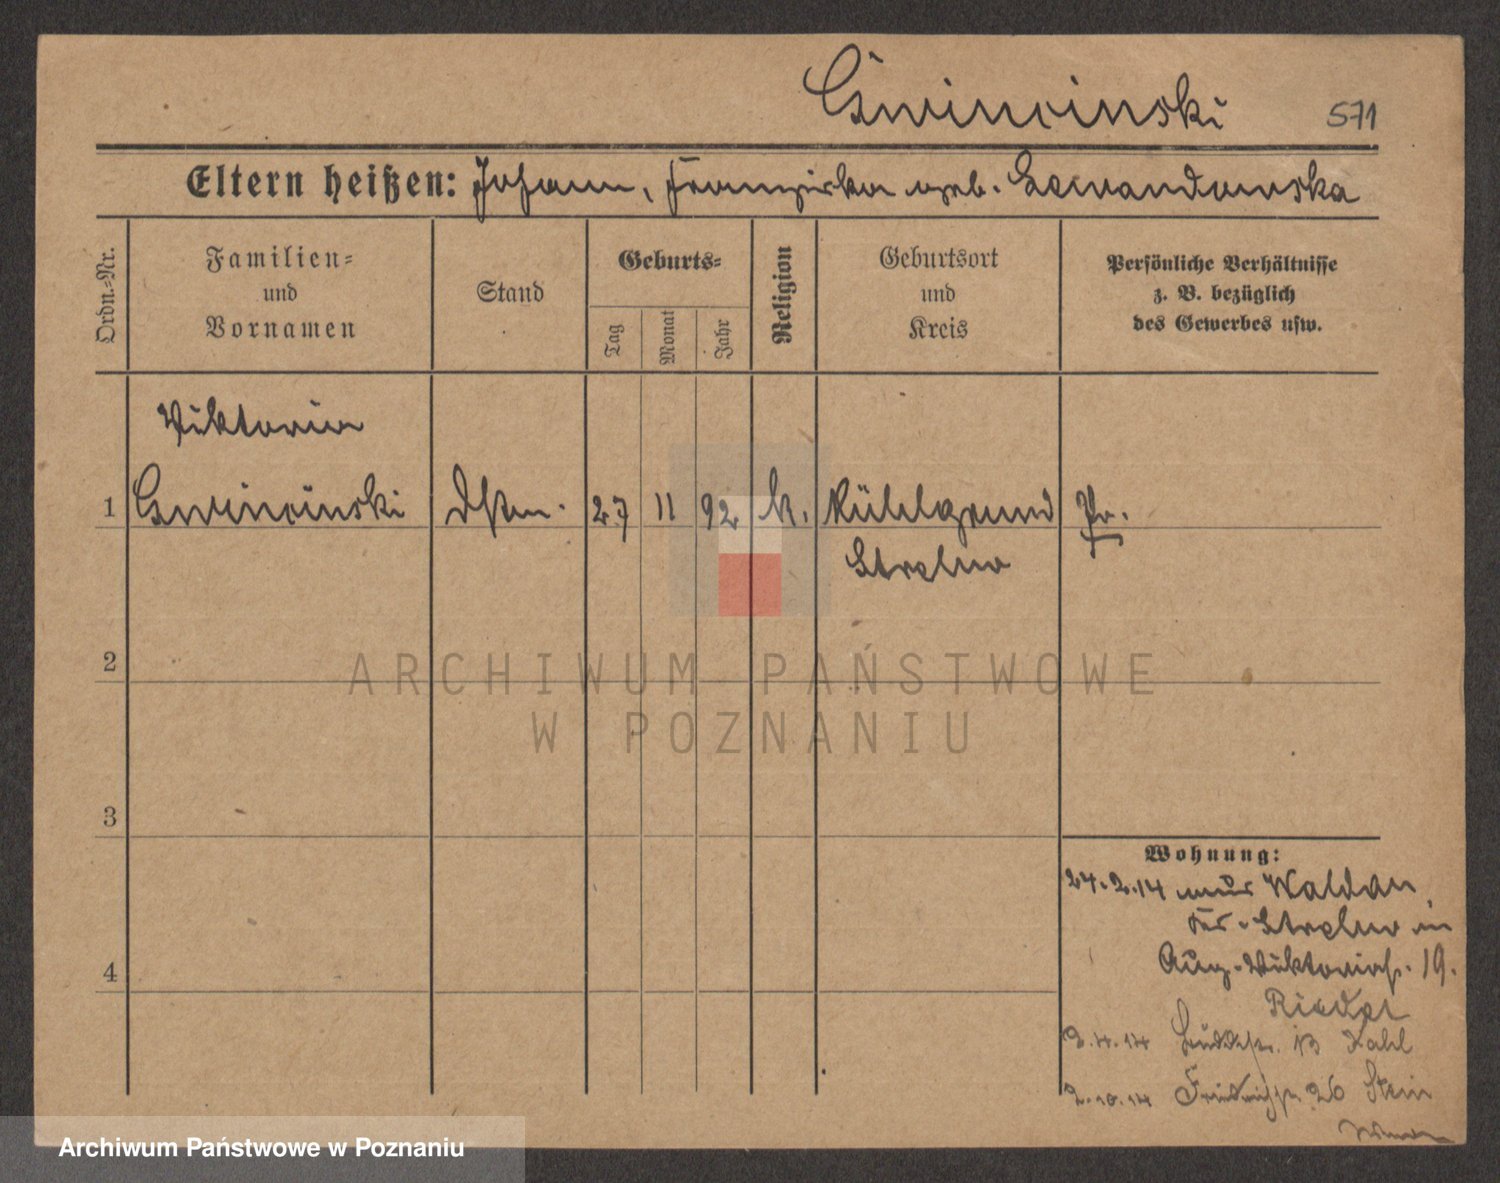 Gwincinski 571
Eltern heißen: Johann, Franziska geb. Lewandowska
Ordn.=Nr.
Familien=
und
Vornamen
Stand
Geburts=
Tag
Monat
Jahr
Religion
Geburtsort
und
Kreis
Persönliche Verhältnisse
z. B. bezüglich
des Gewerbes usw.
Viktoria
1 Gwincinski Dstm. 27 11 92 k. Kühlgrund Pr.
Strelno
2
3
4
Wohnung:
24.2.14 aus Waldau
Krs. Strelno in
Aug. Viktoriastr. 19.
Riedel
2.4.14 13 Kahl
2.10.14 26 Stein
ARCHIWUM PAŃSTWOWE
W POZNANIU
Archiwum Państwowe w Poznaniu